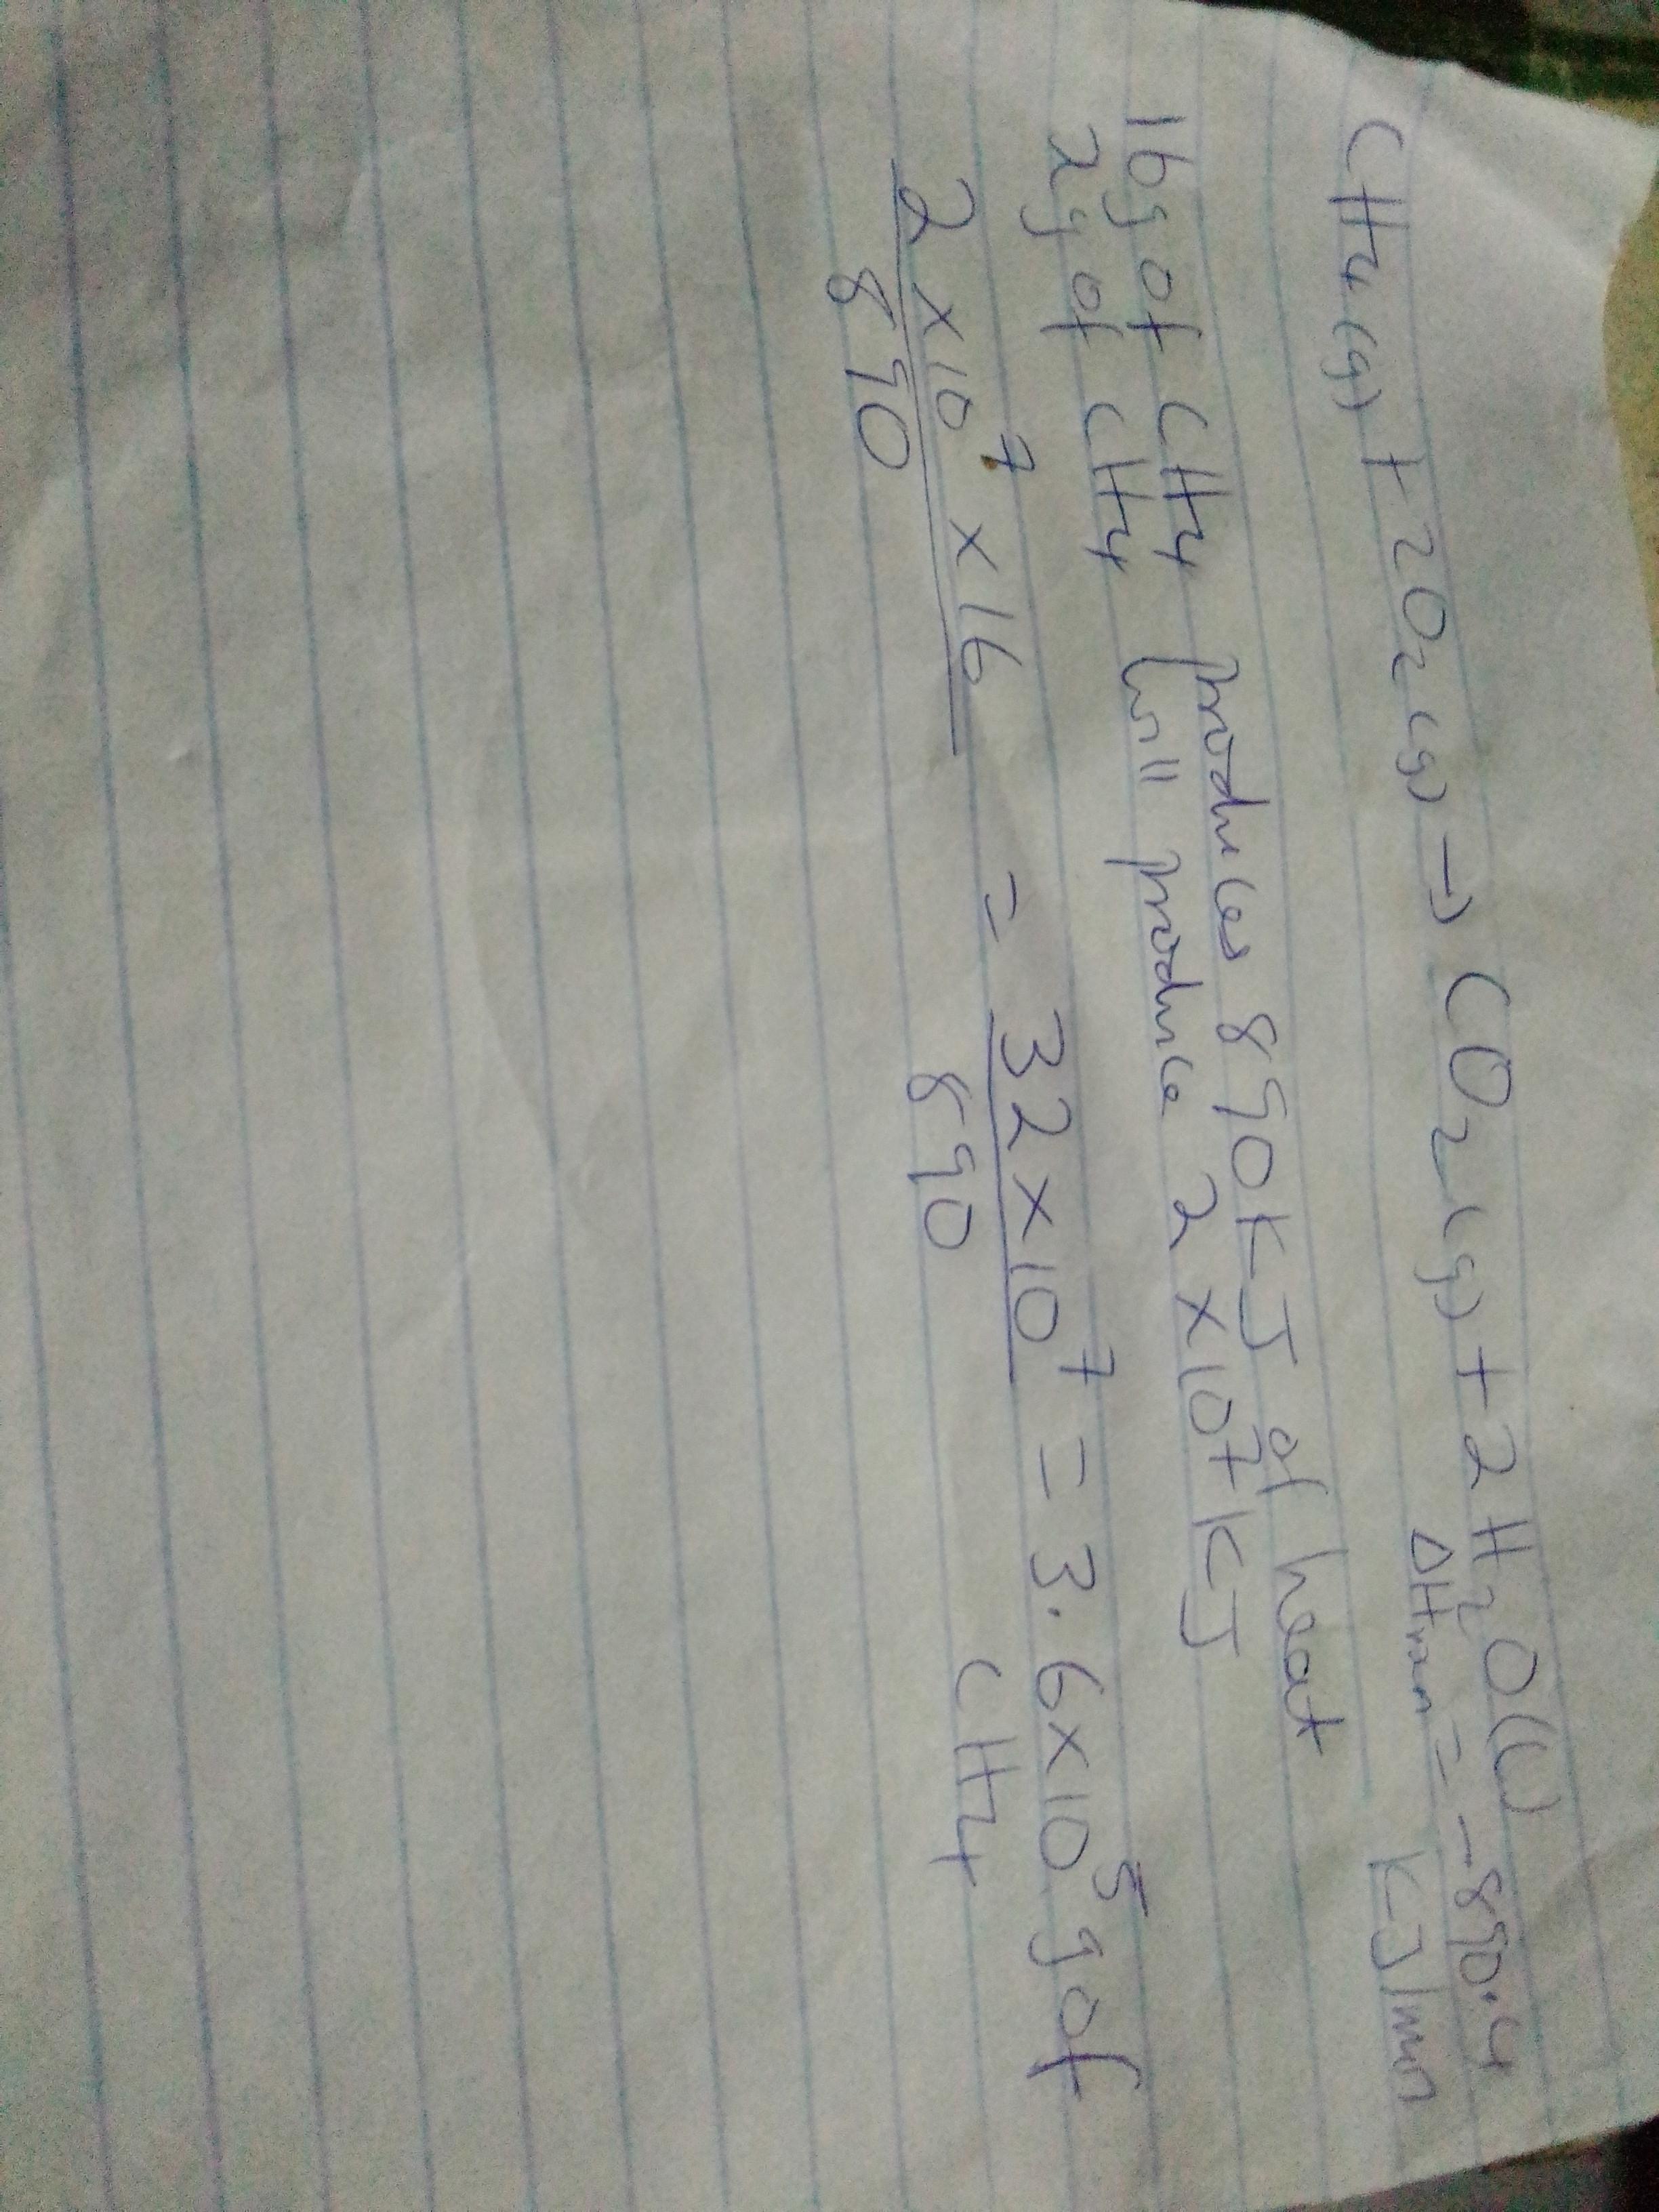 CH4(g) + 2O2(g) → CO2(g) + 2H2O(l)
ΔHrxn = -890.4
16g of CH4 produces 890KJ of heat
2g of CH4 will produce 2 x 107 KJ
2 x 10^7 x 16 = 32 x 10^7 = 3.6 x 10^5 g of
890 890 CH4